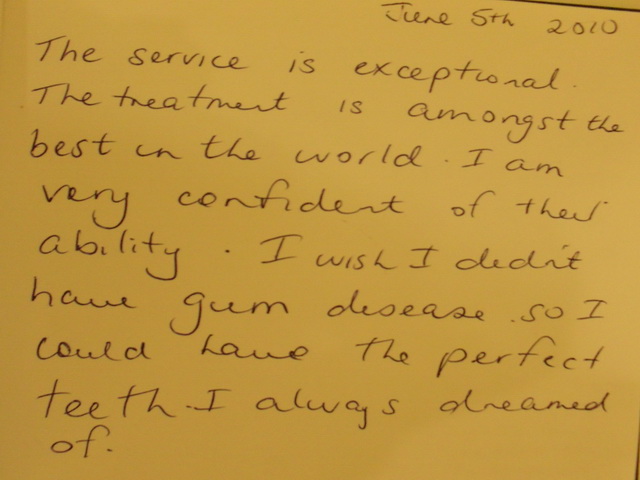 June 5th 2010
The service is exceptional.
The treatment is amongst the
best in the world. I am
very confident of their
ability. I wish I didn't
have gum disease so I
could have the perfect
teeth. I always dreamed
of.